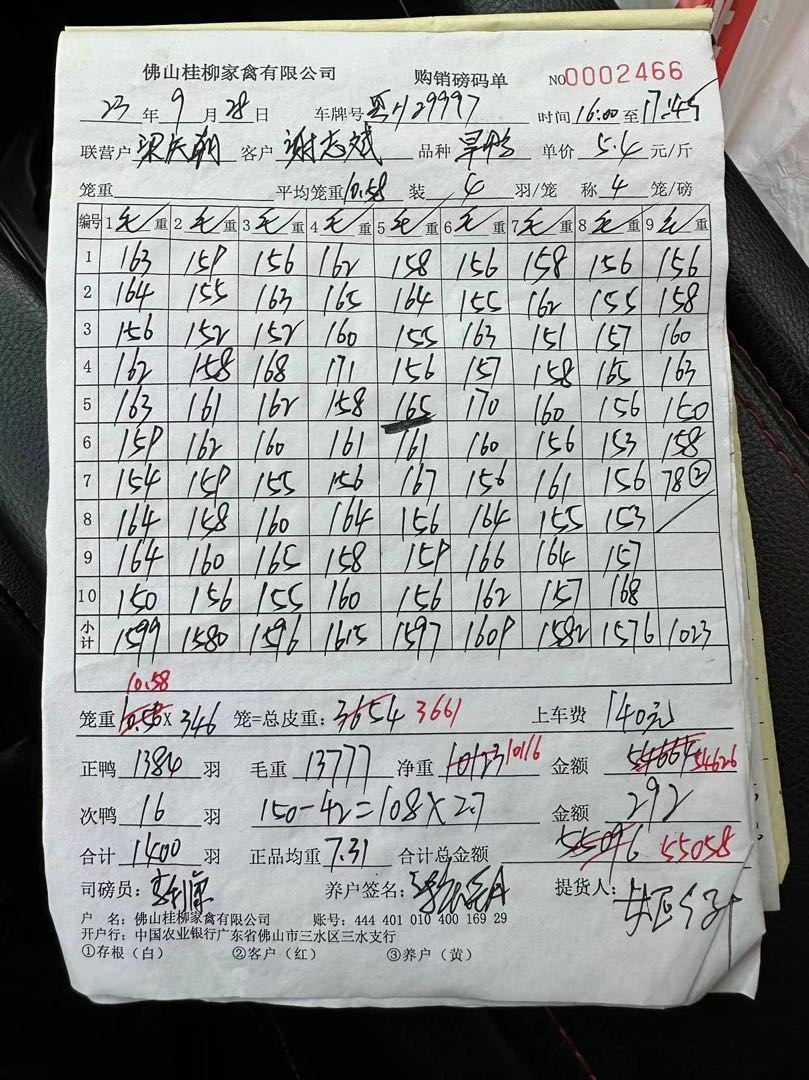 佛山桂柳家禽有限公司 购销磅码单 NO 0002466
23 年 9 月 28 日 车牌号 粤 29997 时间 16:00 至 17:45
联营户 客户 谢志斌 品种 旱鸭 单价 5.4 元/斤
笼重 平均笼重 10.58 装 4 羽/笼 称 4 笼/磅
编号 1 毛 重 2 毛 重 3 毛 重 4 毛 重 5 毛 重 6 毛 重 7 毛 重 8 毛 重 9 毛 重
1 163 159 156 162 158 156 158 156 156
2 164 155 163 165 164 155 162 155 158
3 156 152 152 160 155 163 151 157 160
4 162 158 168 171 156 157 158 165 163
5 163 161 162 158 165 170 160 156 150
6 159 162 160 161 161 160 156 153 158
7 154 159 155 156 167 156 161 156 78②
8 164 158 160 164 156 164 155 153
9 164 160 165 158 159 166 164 157
10 150 156 155 160 156 162 157 168
小计 1599 1580 1596 1615 1597 1609 1582 1576 1023
10.58
笼重 10.56 × 346 笼=总皮重: 3654 3661 上车费 140元
正鸭 1384 羽 毛重 13777 净重 10123 10116 金额 54664 54626
次鸭 16 羽 150-42=108×2.7 金额 292
合计 1400 羽 正品均重 7.31 合计总金额 55096 55058
司磅员: 养户签名: 提货人:
户 名: 佛山桂柳家禽有限公司 账号: 444 401 010 400 169 29
开户行: 中国农业银行广东省佛山市三水区三水支行
①存根（白） ②客户（红） ③养户（黄）